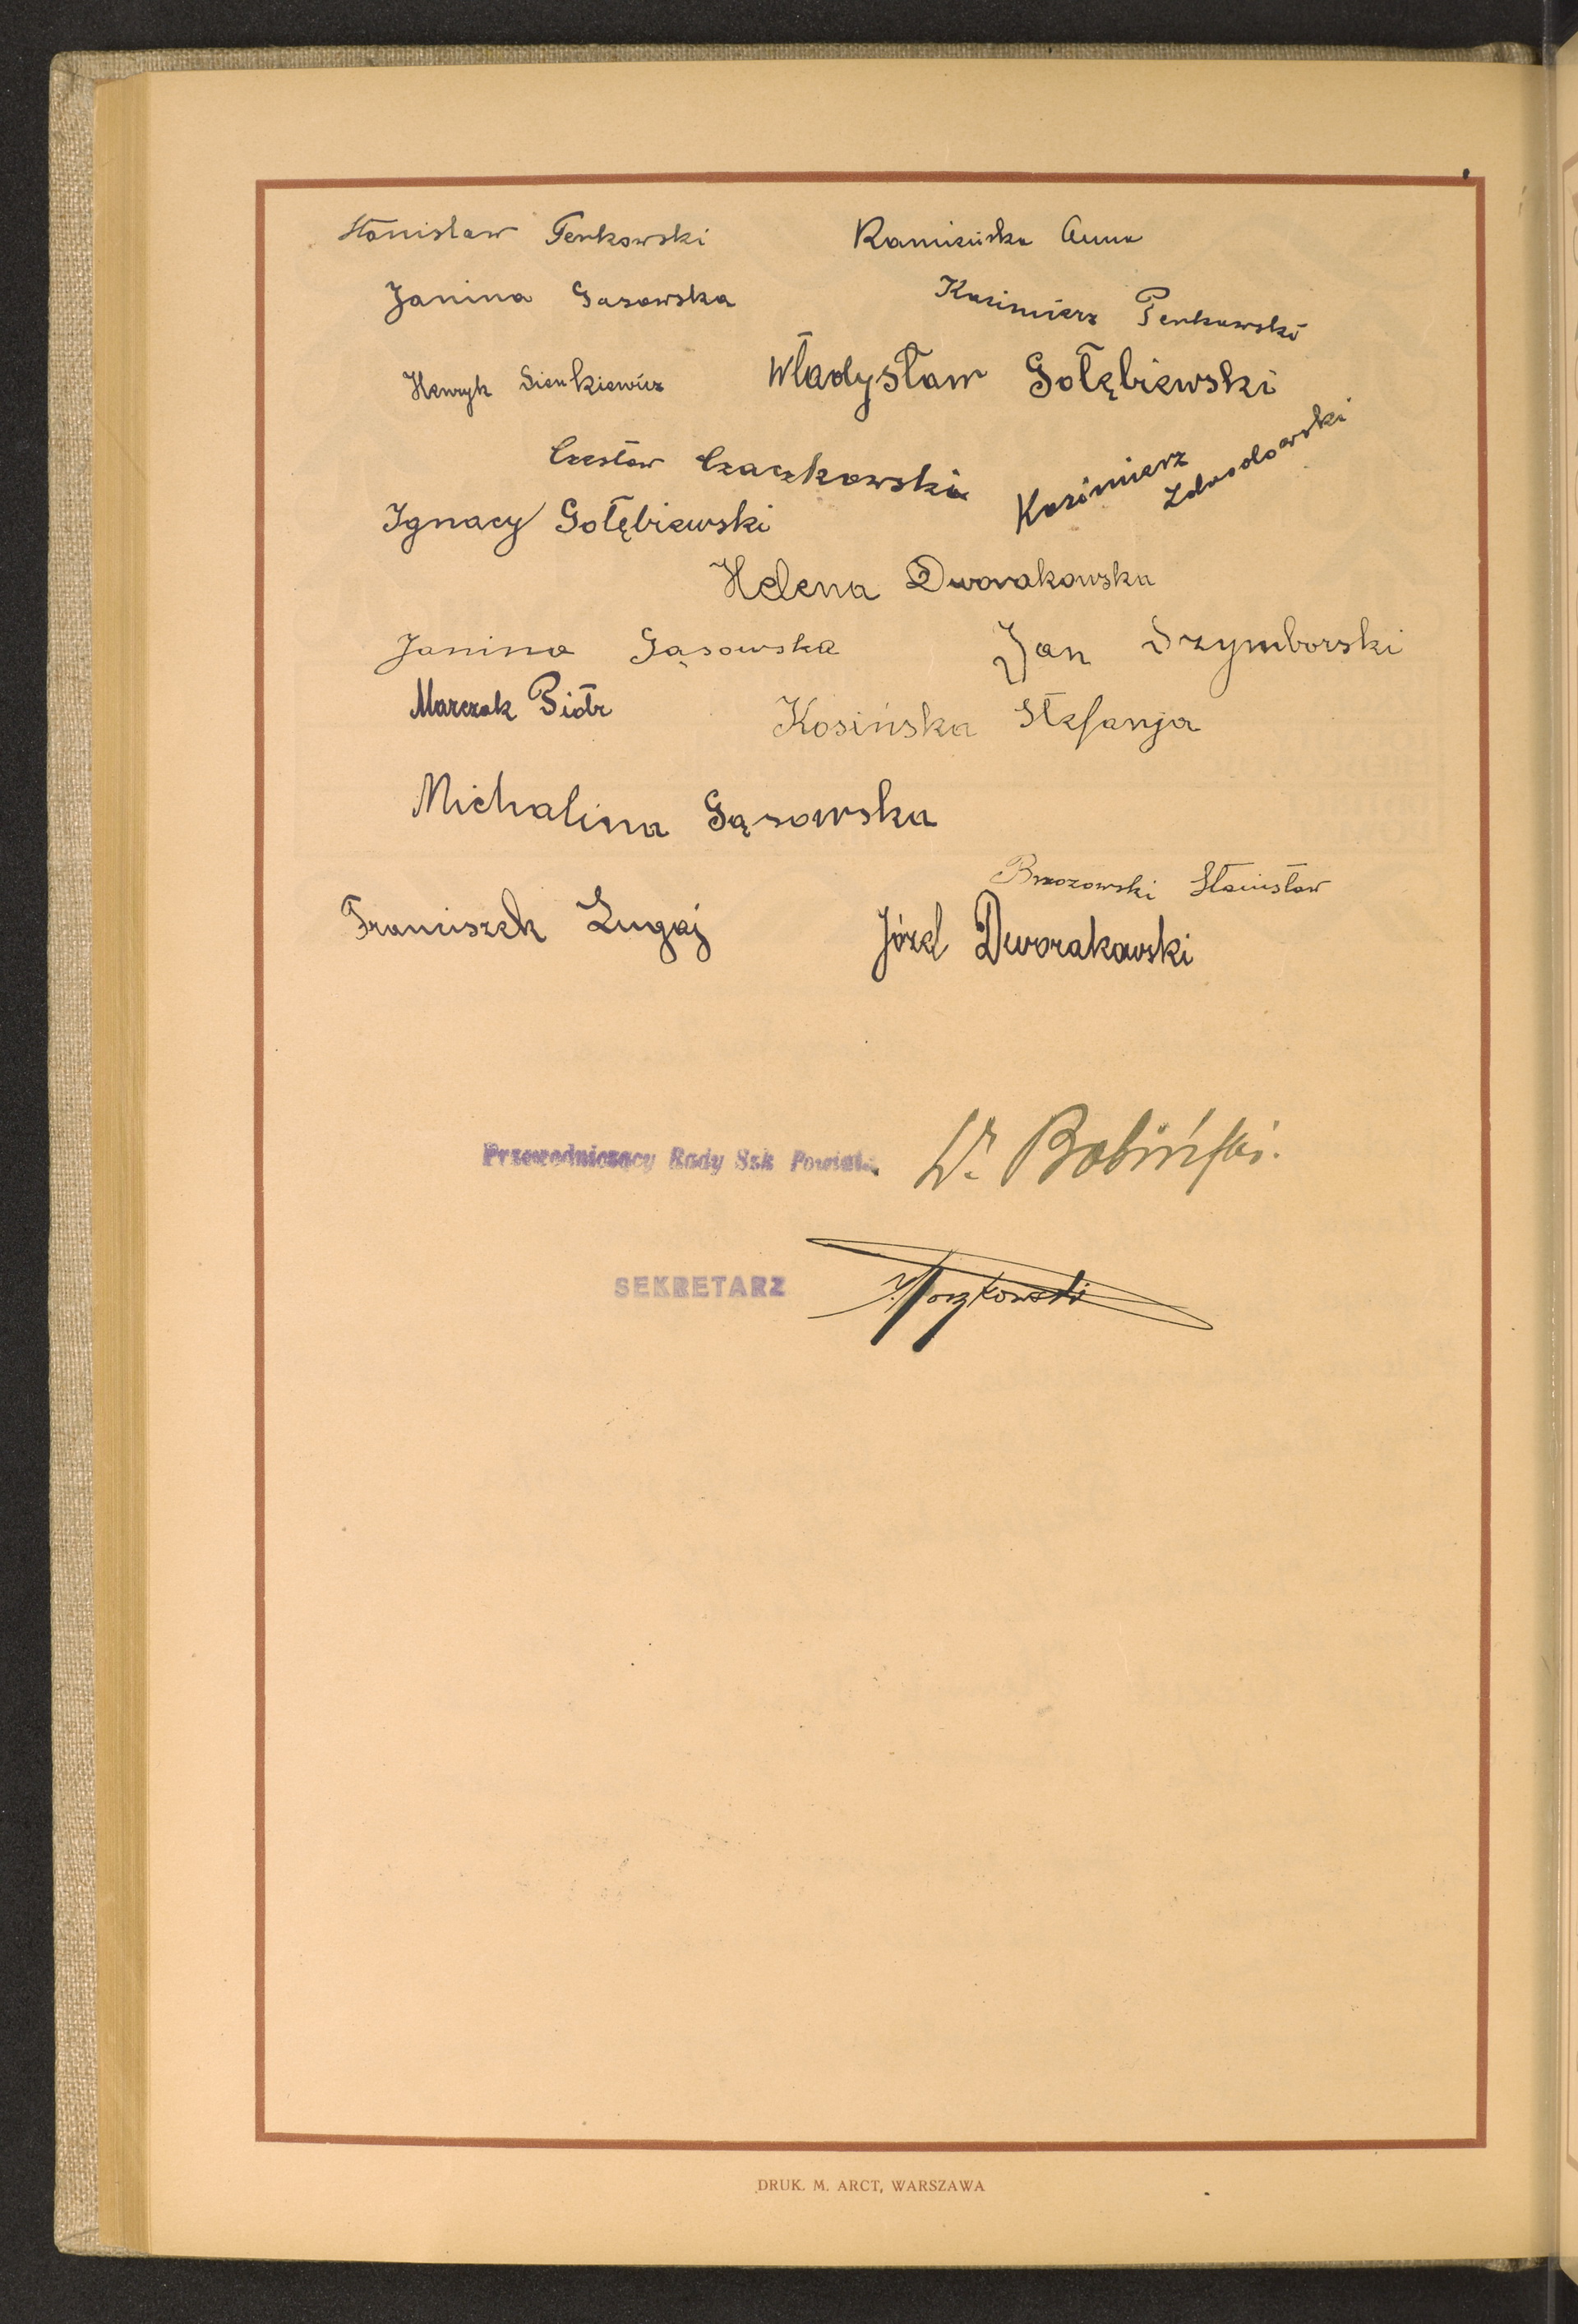 Stanisław Penkowski Kamieńska Anna
Janina Gasowska Kazimierz Penkowski
Henryk Sienkiewicz Władysław Gołębiewski
Czesław Czaczkowski Kazimierz Zdrodowski
Ignacy Gołębiewski
Helena Dworakowska
Janina Gąsowska Jan Szymborski
Marczak Piotr Kosińska Stefanja
Michalina Gąsowska
Brzozowski Stanisław
Franciszek Ługaj Józef Dworakowski
Przewodniczący Rady Szk Powiat. Dr. Bobiński.
SEKRETARZ
DRUK. M. ARCT, WARSZAWA